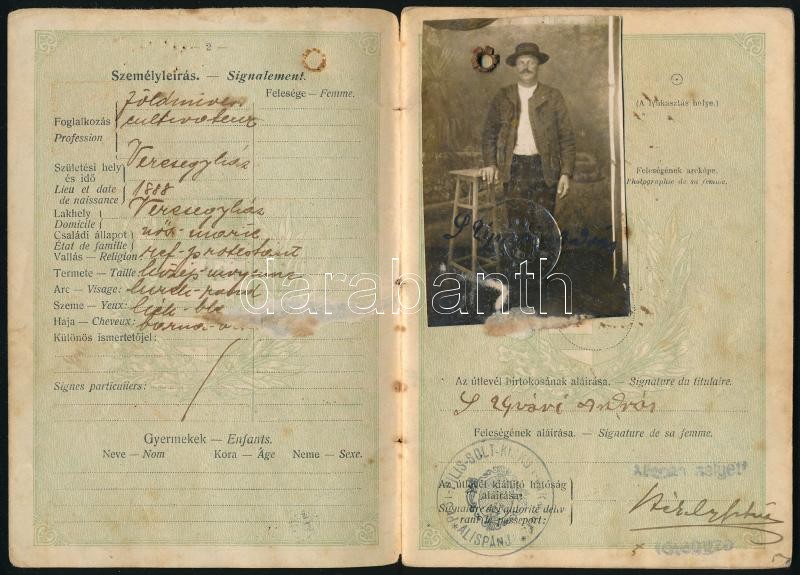 — 2 —
Személyleírás. — Signalement.
Felesége — Femme.
Földmives
Foglalkozás
Profession
cultivateur
Születési hely és idő
Lieu et date de naissance
Veresegyház
1888
Lakhely
Domicile
Veresegyház
Családi állapot
État de famille
nős - marié
Vallás — Religion
ref-protestant
Termete — Taille
közép-moyenne
Arc — Visage:
kerek-rond
Szeme — Yeux:
kék-bleu
Haja — Cheveux:
barna
Különös ismertetőjel:
Signes particuliers:
Gyermekek — Enfants.
Neve — Nom Kora — Âge Neme — Sexe.
(A lyukasztás helye.)
Feleségének arcképe.
Photographie de sa femme.
Az útlevél birtokosának aláírása. — Signature du titulaire.
András
Feleségének aláírása. — Signature de sa femme.
Az útlevél kiállító hatóság aláírása:
Signature de l'autorité délivrant le passeport:
ALISPÁNJA
Alispán helyett
darabanth